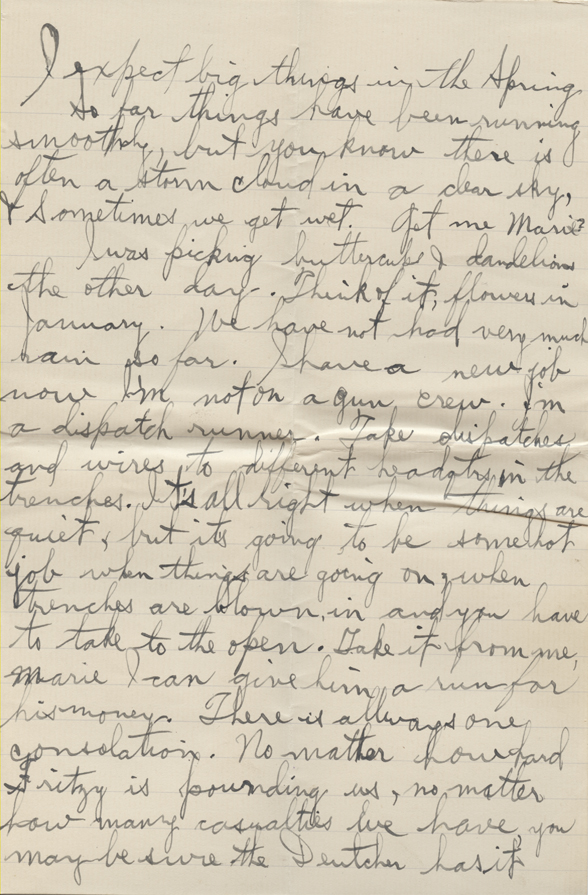 I expect big things in the Spring
So far things have been running
smoothly, but you know there is
often a storm cloud in a clear sky,
& sometimes we get wet. Get me Marie?
I was picking buttercups & dandelions
the other day. Think of it, flowers in
January. We have not had very much
rain so far. I have a new job
now I'm not on a gun crew. I'm
a dispatch runner. Take dispatches
and wires to different headqtrs in the
trenches. It's all right when things are
quiet, but its going to be some hot
job when things are going on, when
trenches are blown in and you have
to take to the open. Take it from me,
Marie I can give him a run for
his money. There is allways one
consolation. No matter how hard
Fritzy is pounding us, no matter
how many casualties we have, you
may be sure the Deutcher has it